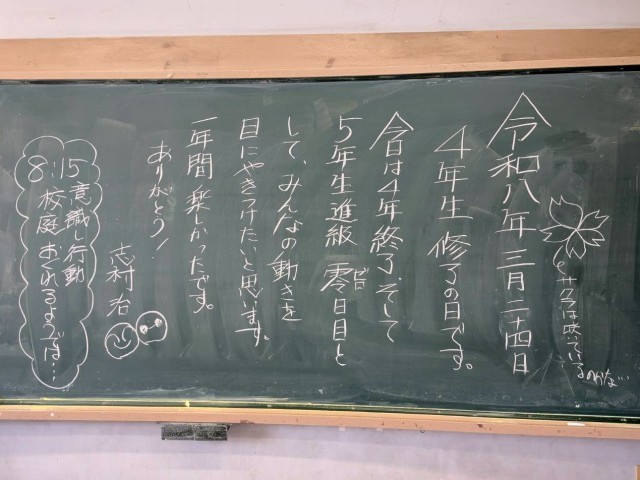 令和八年三月二十四日
サクラは咲いているのかな…
4年生 修了の日です。
今日は4年終了.そして
5年生進級 零日目と
ゼロ
して、みんなの動きを
目にやきつけたいと思います。
一年間 楽しかったです。
ありがとう!
志村 治
8:15 意識し行動
校庭 おくれるようでは…